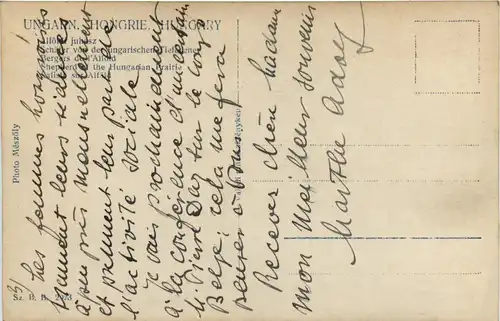 UNGARN, HONGRIE, HUNGARY
Alföldi juhász
Schäfer von der ungarischen Tiefebene
Bergers de l'Alföld
Shepherd of the Hungarian Prairie
Photo Mészöly
Sz. H. B.
3/
Les femmes hongroises
tiennent leurs séances
à peu près mensuellement
et prennent leur part de
l'activité sociale.
Je vais prochainement
à la conférence d'un certain
M. Pierre Daz sur le Congo
Belge; cela me fera
penser à vous
Recevez chère Madame
mon meilleur souvenir
Martha Adolf